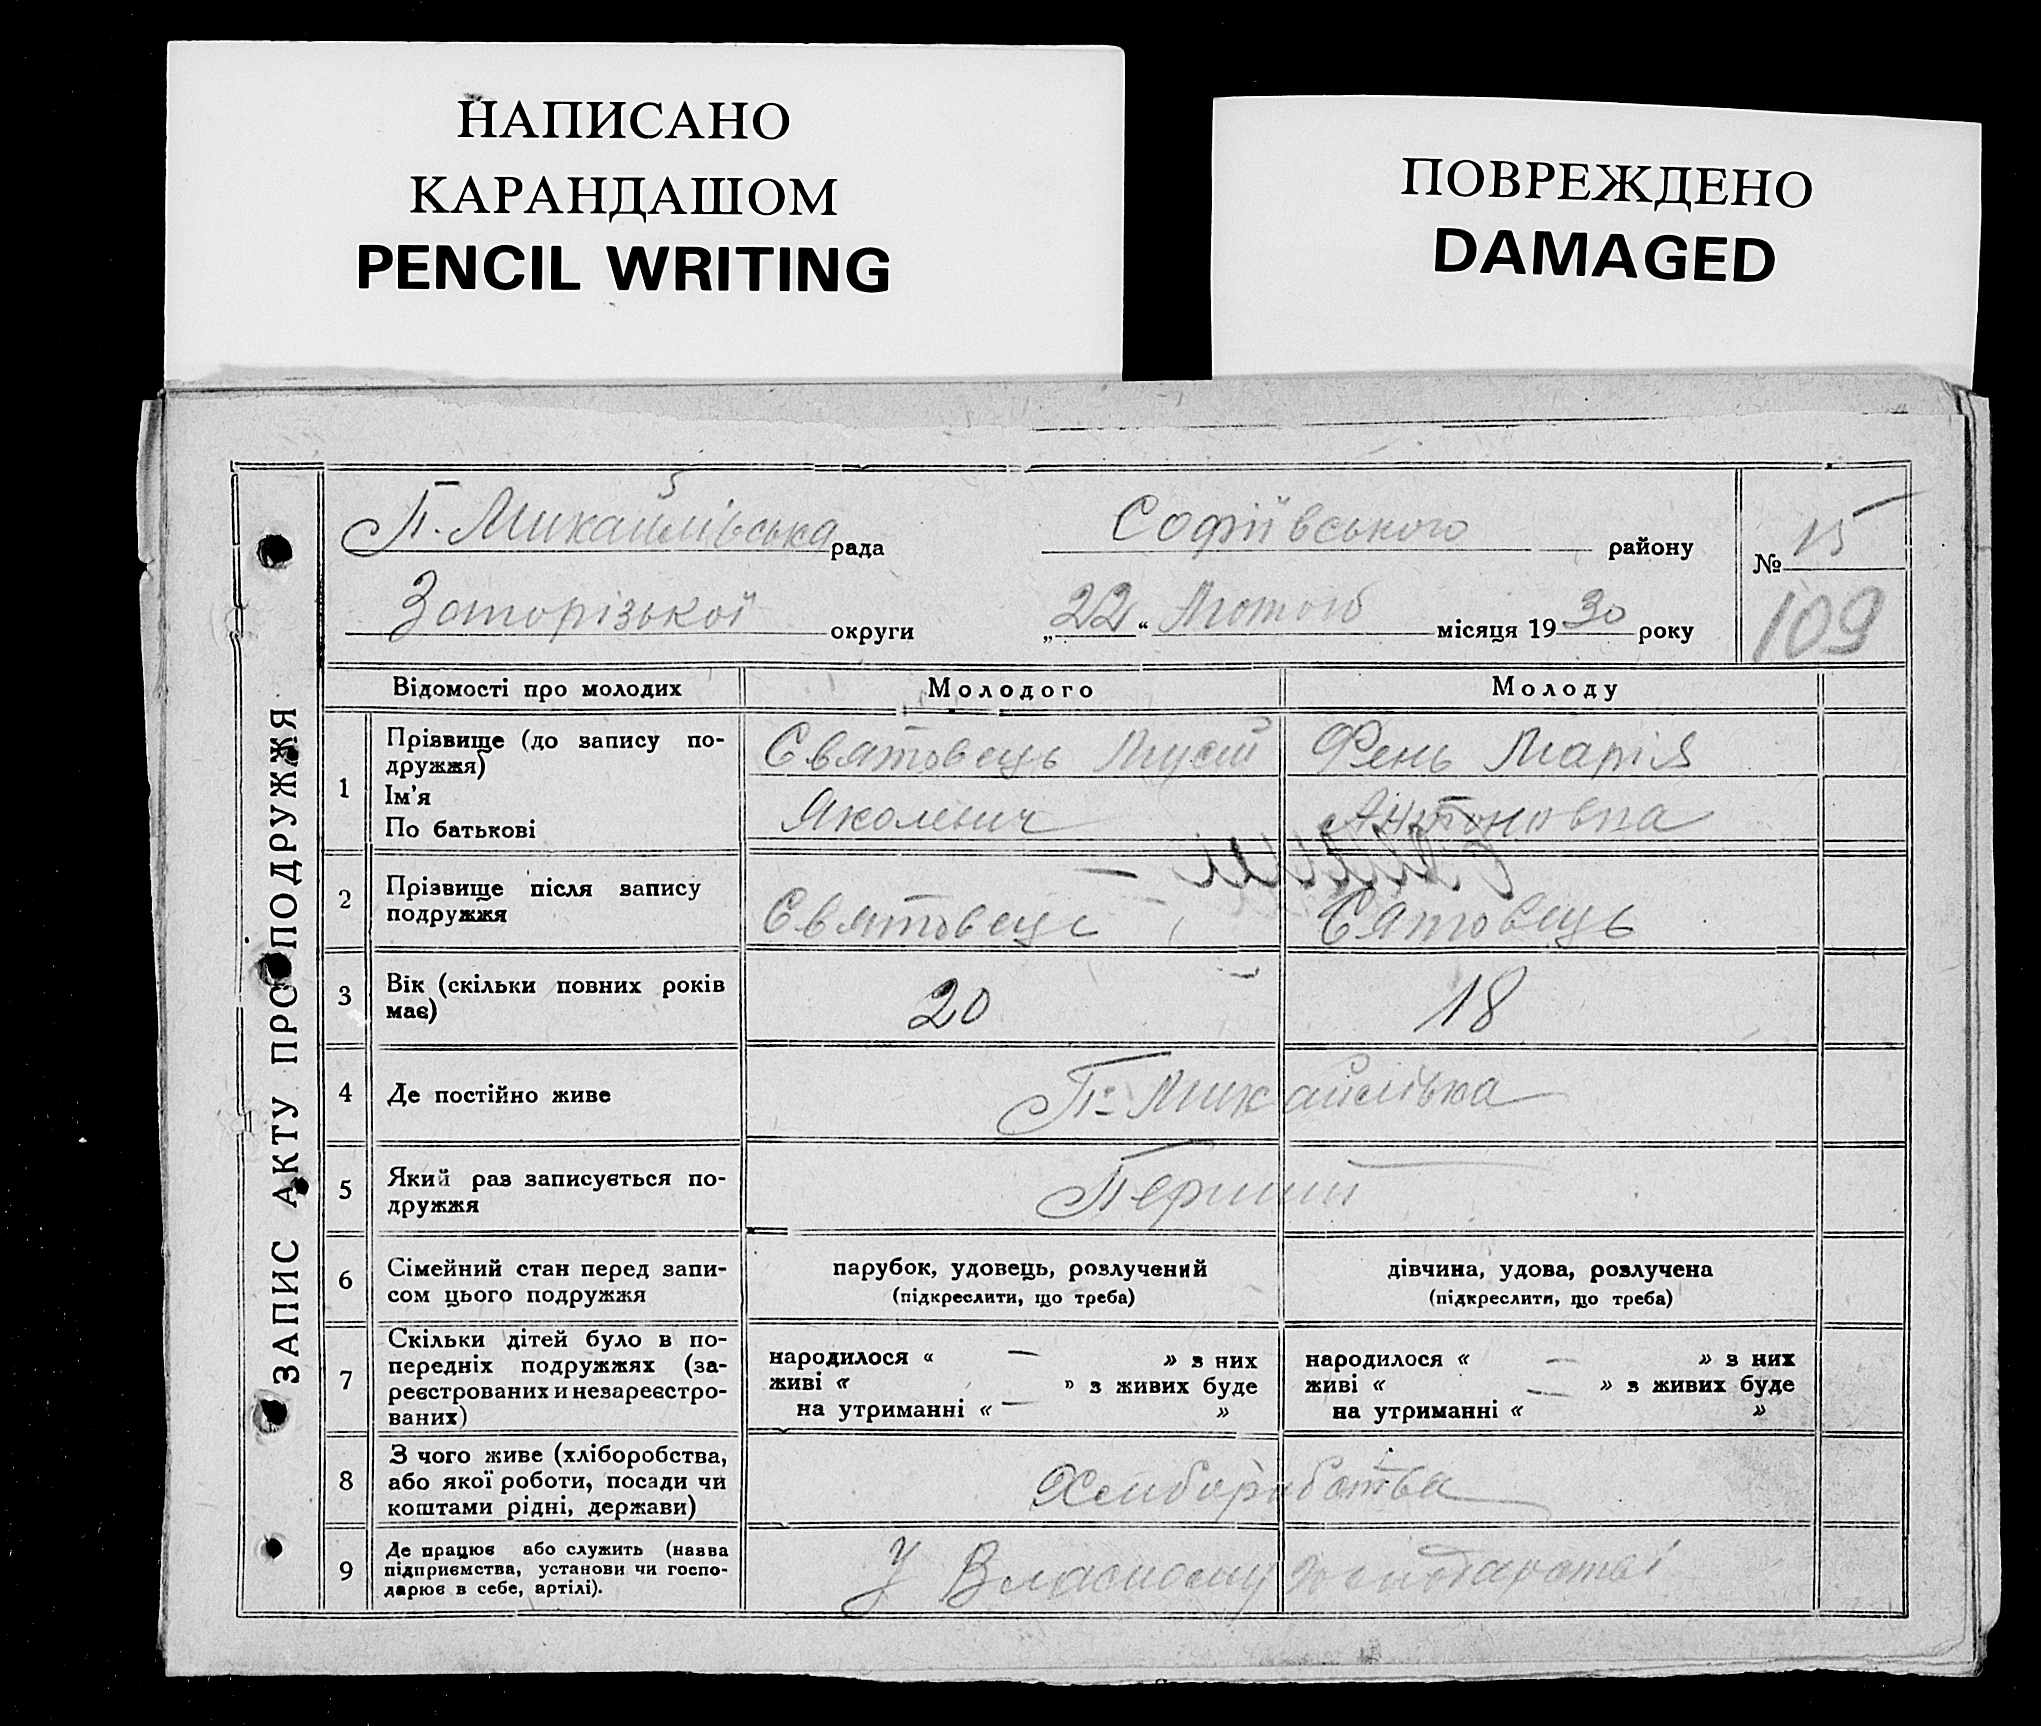 НАПИСАНО
КАРАНДАШОМ
PENCIL WRITING
ПОВРЕЖДЕНО
DAMAGED
ЗАПИС АКТУ ПРО ПОДРУЖЖЯ
П. Михайлівська рада Софіївського району № 15
Запорізької округи „22“ Лютого місяця 1930 року 109
Відомості про молодих Молодого Молоду
1 Прізвище (до запису по-
дружжя) Святовець Мусій Фень Марія
Ім'я
По батькові Яколевич Антоновна
2 Прізвище після запису
подружжя Святовець Сятовець
3 Вік (скільки повних років
має) 20 18
4 Де постійно живе П-Михайлівка
5 Який раз записується по-
дружжя Перший
6 Сімейний стан перед запи-
сом цього подружжя
парубок, удовець, розлучений
(підкреслити, що треба)
дівчина, удова, розлучена
(підкреслити, що треба)
7 Скільки дітей було в по-
передніх подружжях (за-
реєстрованих и незареєстро-
ваних)
народилося « — » з них
живі « » з живих буде
на утриманні « — »
народилося « — » з них
живі « — » з живих буде
на утриманні « »
8 З чого живе (хліборобства,
або якої роботи, посади чи
коштами рідні, держави)
9 Де працює або служить (назва
підприємства, установи чи госпо-
дарює в себе, артілі).
У Власному